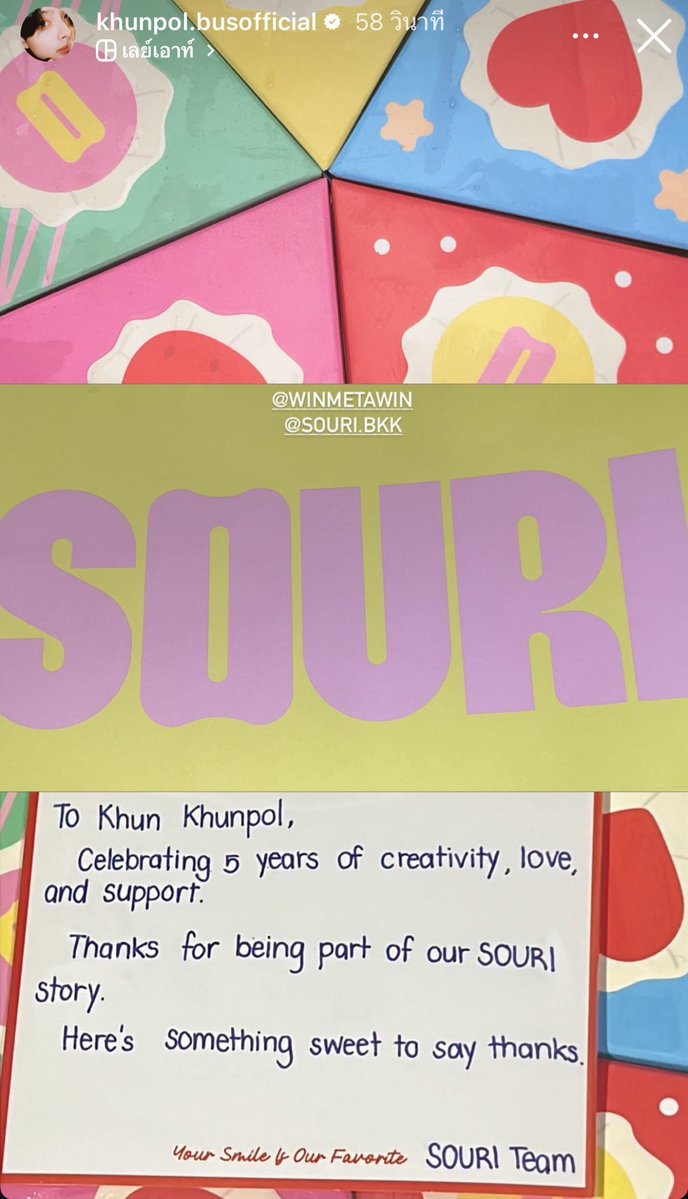 khunpol.busofficial 58 วินาที
เลย์เอาท์
@WINMETAWIN
@SOURI.BKK
SOURI
To Khun Khunpol,
Celebrating 5 years of creativity, love,
and support.
Thanks for being part of our SOURI
story.
Here's something sweet to say thanks.
Your Smile Is Our Favorite SOURI Team